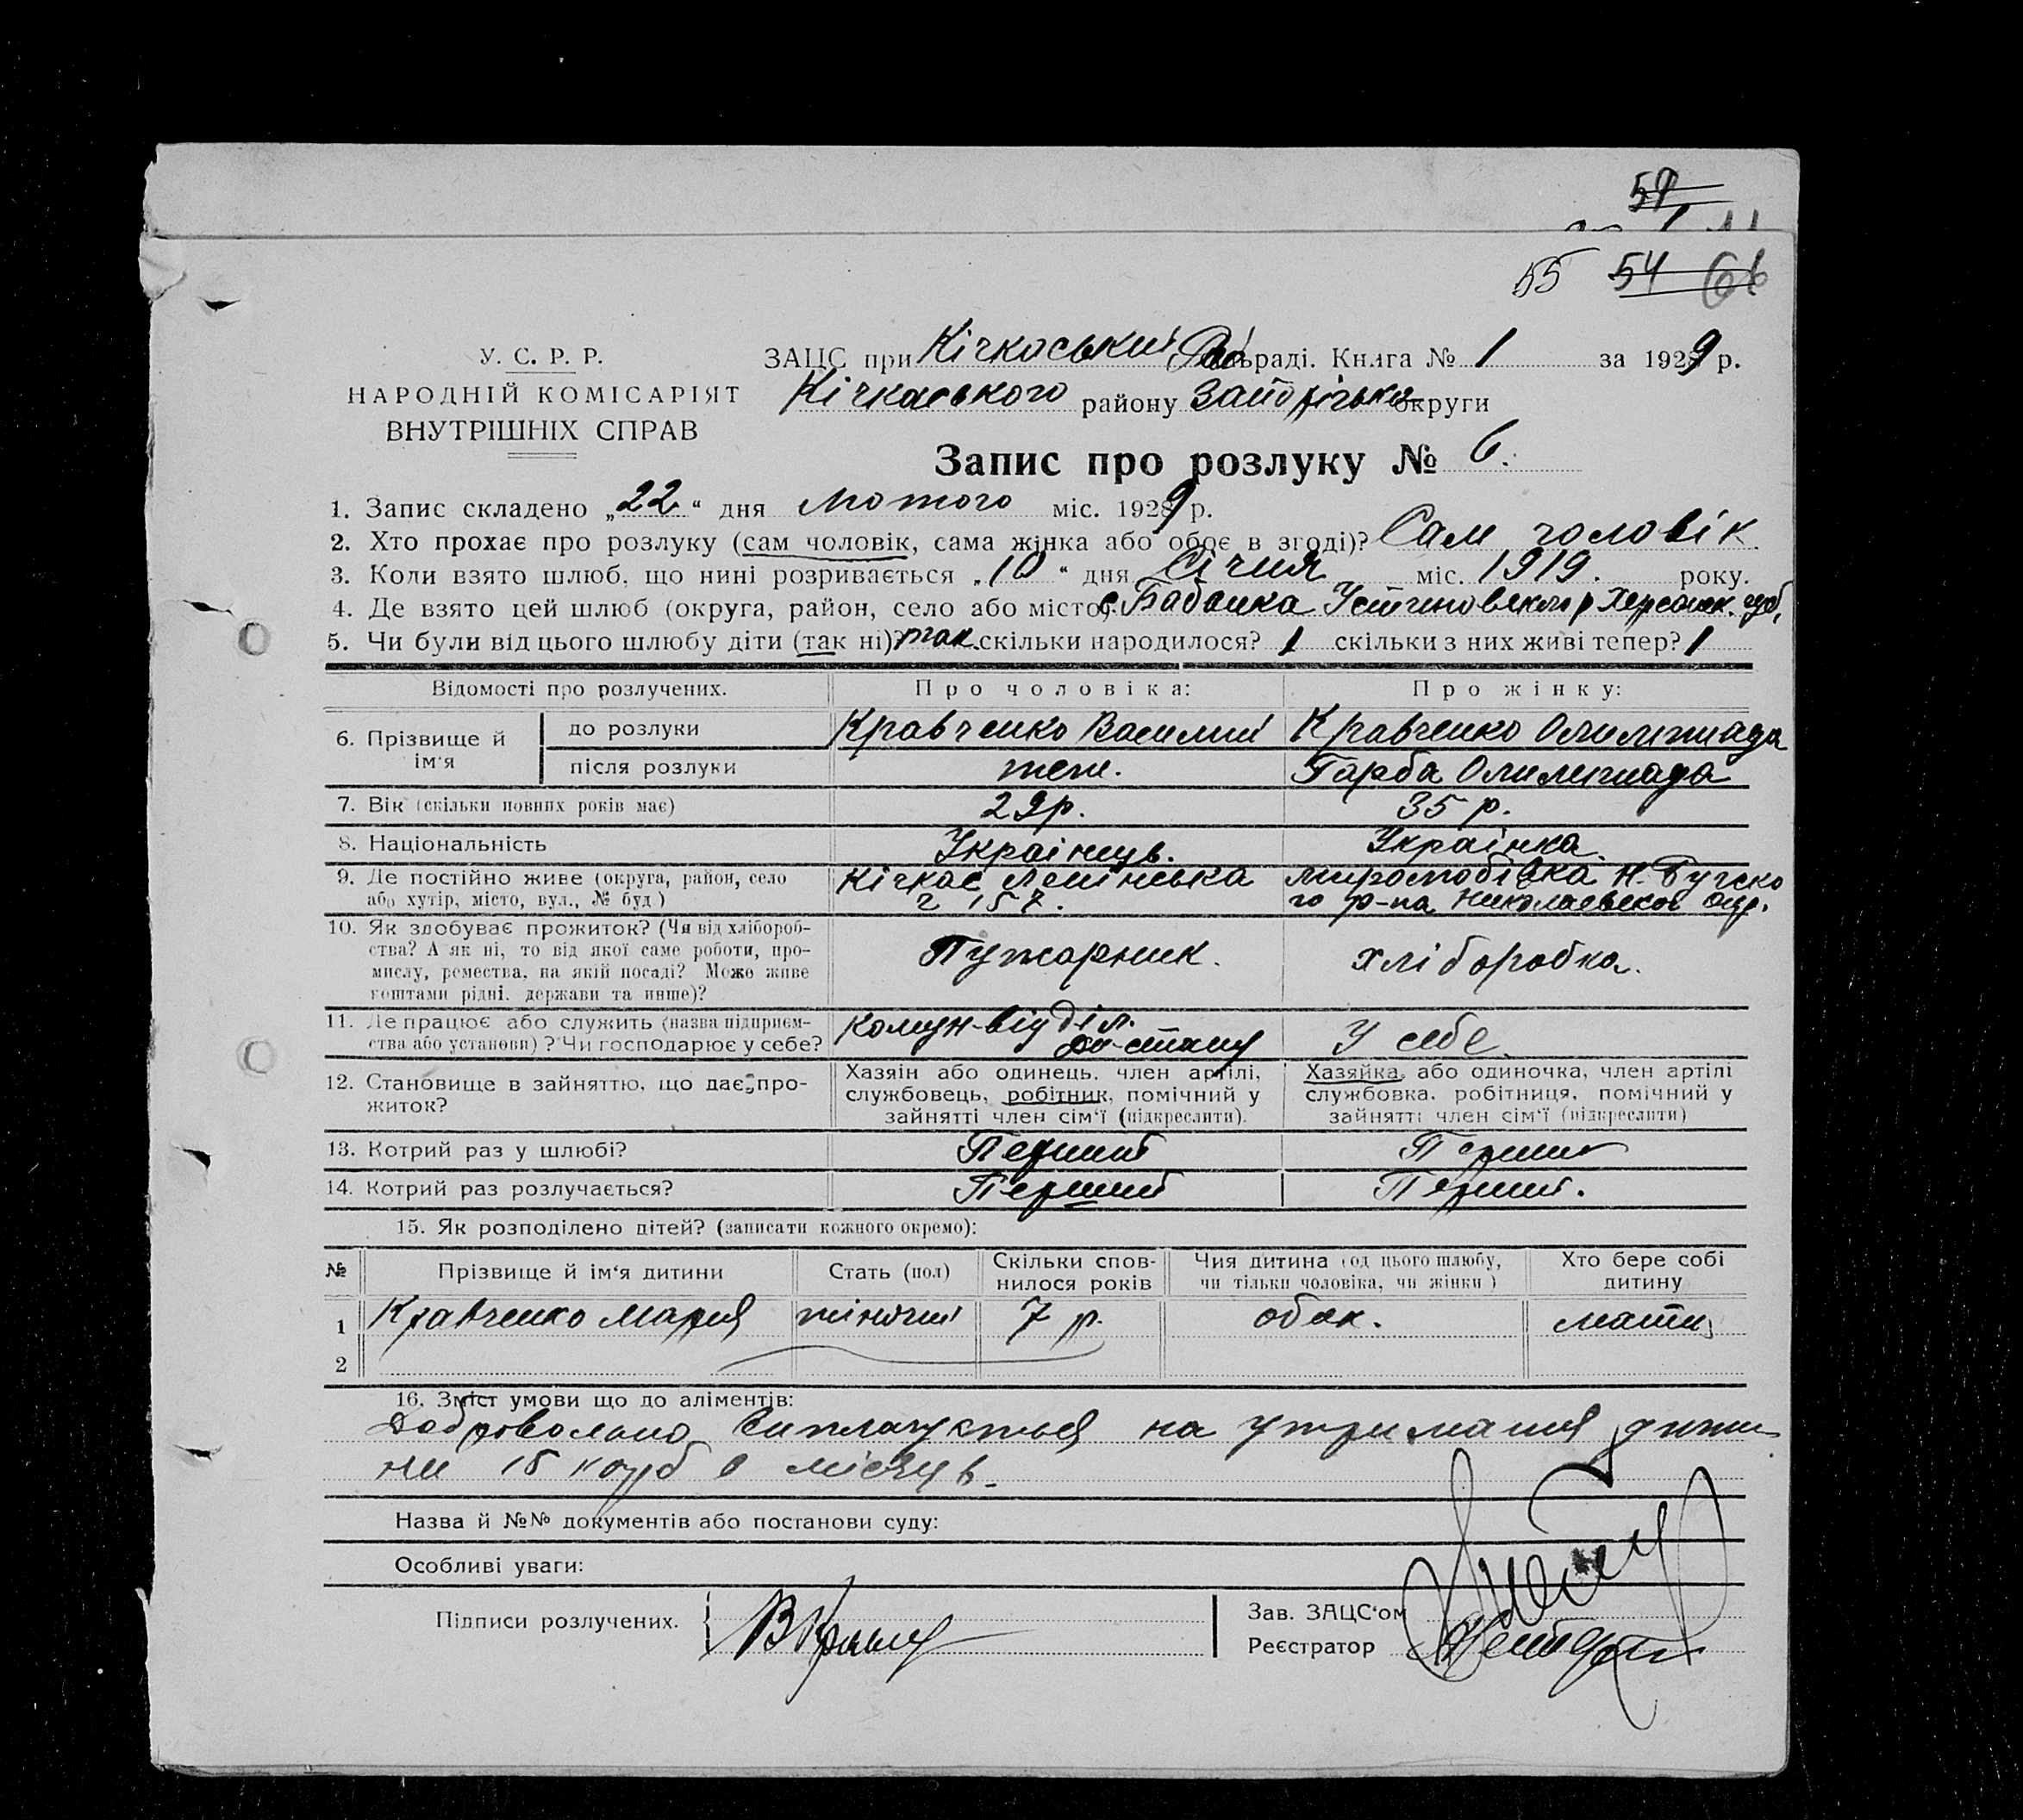 59
55 54 66
У. С. Р. Р.
НАРОДНІЙ КОМІСАРІЯТ
ВНУТРІШНІХ СПРАВ
ЗАЦС при Кічкаський Рай раді. Книга № 1 за 1929 р.
Кічкаського району Запоріжько округи
Запис про розлуку № 6.
1. Запис складено „22“ дня Лютого міс. 1929 р.
2. Хто прохає про розлуку (сам чоловік, сама жінка або обоє в згоді)? Сам чоловік
3. Коли взято шлюб, що нині розривається „10“ дня Січня міс. 1919. року.
4. Де взято цей шлюб (округа, район, село або місто) с. Бабанка Устиновского р Херсонск. губ.
5. Чи були від цього шлюбу діти (так ні)? так. скільки народилося? 1 скільки з них живі тепер? 1
Відомості про розлучених. Про чоловіка: Про жінку:
6. Прізвище й ім'я до розлуки Кравченко Василий Кравченко Олимпиада
після розлуки теж. Гарба Олимпиада
7. Вік (скільки повних років має) 29р. 35 р.
8. Національність Українець. Українка.
9. Де постійно живе (округа, район, село Кічкас Ленінська Миролюбівка Н. Бугско
або хутір, місто, вул., № буд) 157. го р-на Николаевскоі окр.
10. Як здобуває прожиток? (Чи від хлібороб-
ства? А як ні, то від якої саме роботи, про-
мислу, ремества, на якій посаді? Може живе
коштами рідні, держави та инше)? Пужарник. хліборобка.
11. Де працює або служить (назва підприєм- Комун-відділ.
ства або установи)? Чи господарює у себе? У себе.
12. Становище в зайняттю, що дає про-
житок?
Хазяїн або одинець, член артілі,
службовець, робітник, помічний у
зайнятті член сім'ї (підкреслити).
Хазяйка, або одиночка, член артілі
службовка, робітниця, помічний у
зайнятті член сім'ї (підкреслити)
13. Котрий раз у шлюбі? Перший Перший
14. Котрий раз розлучається? Перший Перший.
15. Як розподілено дітей? (записати кожного окремо):
№ Прізвище й ім'я дитини Стать (пол) Скільки спов-нилося років Чия дитина (од цього шлюбу, чи тільки чоловіка, чи жінки) Хто бере собі дитину
1 Кравченко Мария жіночий 7 р. обох. мати
2
16. Зміст умови що до аліментів:
Добровольно виплачується на утримання дити
ни 15 карб в місяць.
Назва й №№ документів або постанови суду:
Особливі уваги:
Підписи розлучених.
Зав. ЗАЦС'ом
Реєстратор